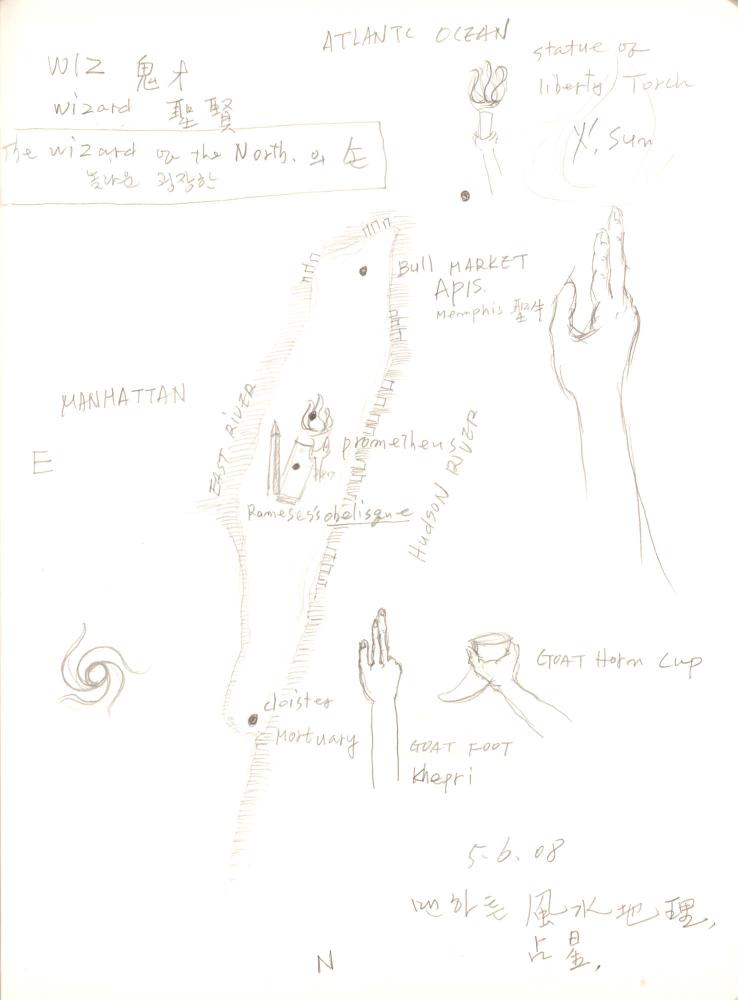 ATLANTC OCEAN
WIZ 鬼才
wizard 聖賢
The wizard of the North. 의 손
놀라운 굉장한
statue of
liberty Torch
빛, Sun
Bull MARKET
APIS.
Memphis 聖牛
MANHATTAN
EAST RIVER
E
prometheus
Rameses's obelisque
Hudson RIVER
cloister
Mortuary
GOAT Horn Cup
GOAT FOOT
Khepri
5.6.08
맨하튼 風水地理,
占星,
N